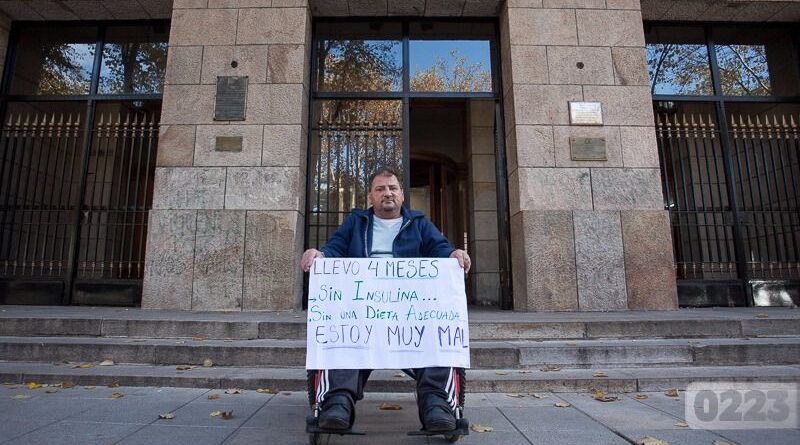 LLEVO 4 MESES
SIN INSULINA...
SIN UNA DIETA ADECUADA
ESTOY MUY MAL
0223